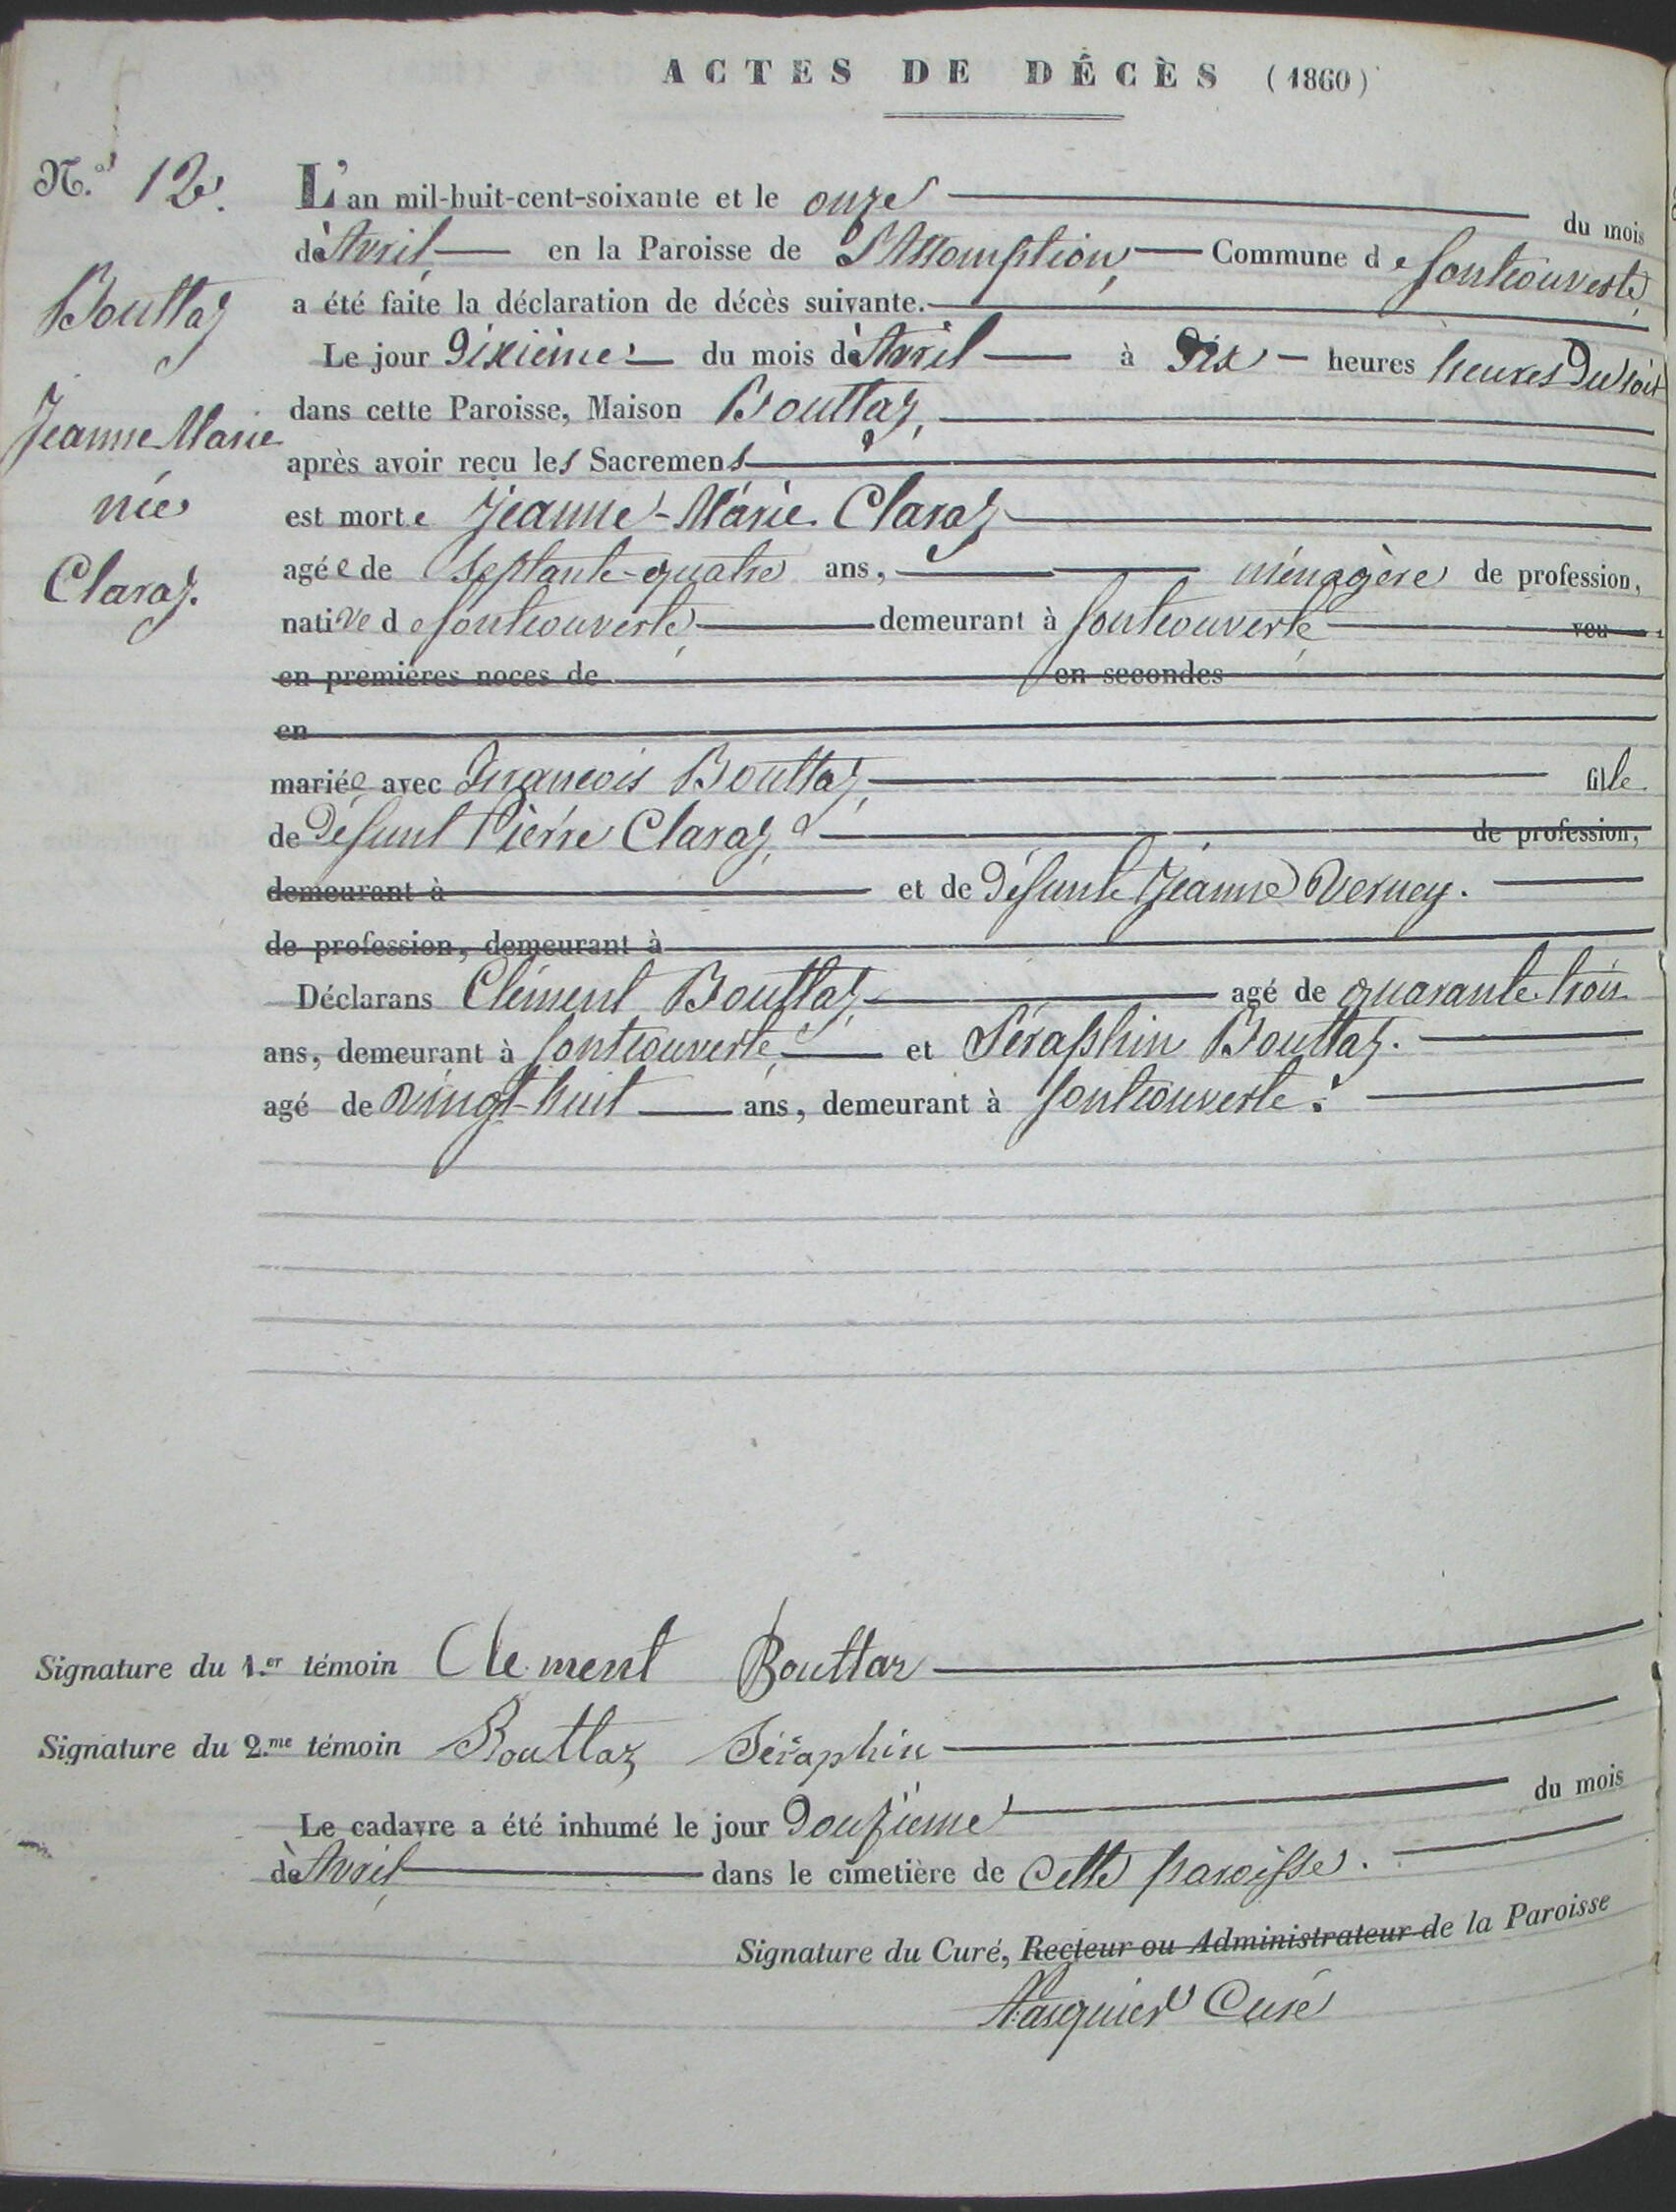 ACTES DE DÉCÈS (1860)
N.º 12.
L'an mil-huit-cent-soixante et le onze du mois
d'Avril, en la Paroisse de l'Assomption, Commune de fontcouverte,
a été faite la déclaration de décès suivante.
Le jour dixième du mois d'Avril à Dix heures heures Du soir
dans cette Paroisse, Maison Bouttaz,
après avoir reçu les Sacremens
est morte Jeanne-Marie Claraz
agée de septante-quatre ans, ménagère de profession,
native de fontcouverte, demeurant à fontcouverte, veu
en premières noces de en secondes
en
mariée avec François Bouttaz, fille
de Défunt Pierre Claraz, de profession,
demeurant à et de défunte Jeanne Verney.
de profession, demeurant à
Déclarans Clément Bouttaz, agé de quarante-trois
ans, demeurant à fontcouverte, et Séraphin Bouttaz.
agé de vingt-huit ans, demeurant à fontcouverte.
Bouttaz
Jeanne Marie
née
Claraz.
Signature du 1.er témoin Clement Bouttaz
Signature du 2.me témoin Bouttaz Séraphin
Le cadavre a été inhumé le jour Douzième du mois
d'Avril, dans le cimetière de cette paroisse.
Signature du Curé, Recteur ou Administrateur de la Paroisse
Pasquier Curé